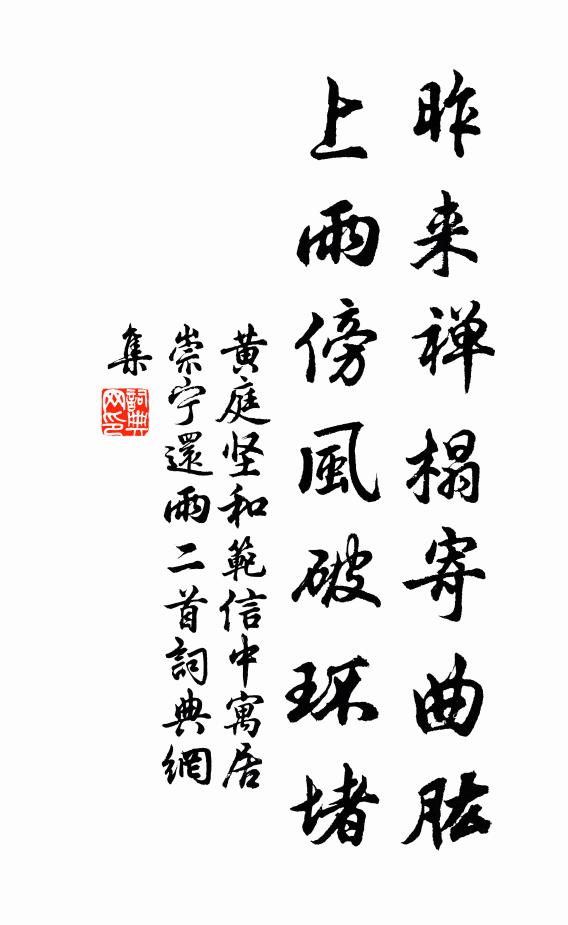 昨来禅榻寄曲肱
上雨傍風破环堵
黄庭坚和範信中寓居
崇宁還雨二首詞典網
集
詞典
网印